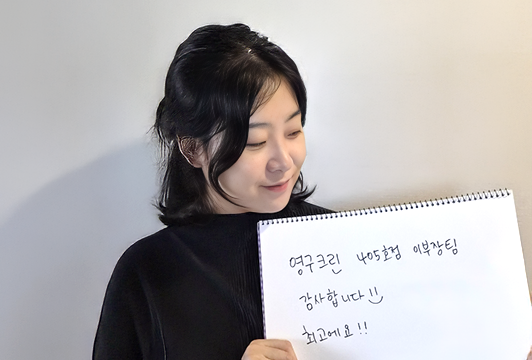 영구크린 405호점 이부장팀
감사합니다!!
최고에요!!